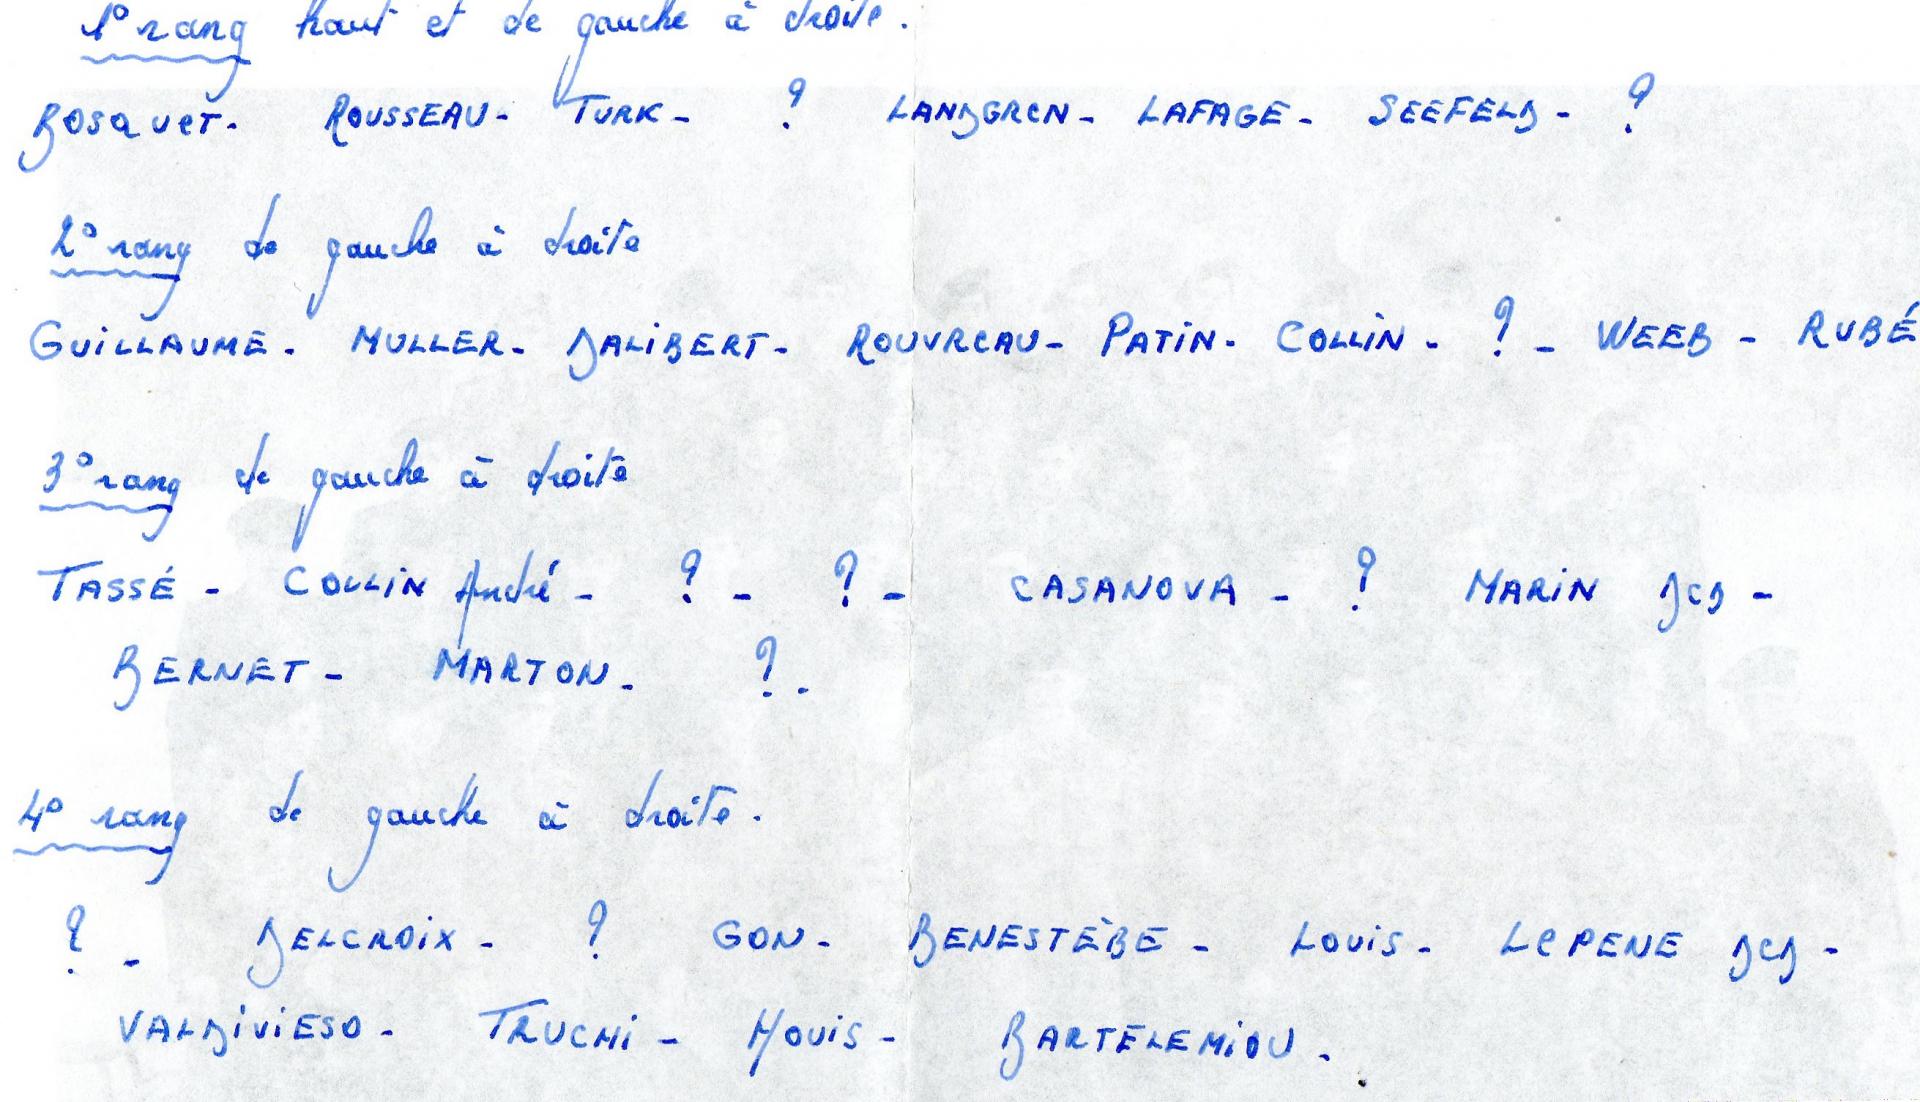 1° rang haut et de gauche à droite.
BOSQUET. ROUSSEAU- TURK- ? LANDGREN- LAFAGE- SEEFELD- ?
2° rang de gauche à droite
GUILLAUME. MULLER- DALIBERT- ROUVREAU- PATIN. COLLIN. ?- WEEB- RUBÉ
3° rang de gauche à droite
TASSÉ- COLLIN André- ?- ?- CASANOVA- ? MARIN DCD-
BERNET- MARTON. ?.
4° rang de gauche à droite.
?- DELCROIX- ? GON- BENESTÈBE- LOUIS- LEPENE DCD-
VALDIVIESO- TRUCHI- HOUIS- BARTELEMIOU.